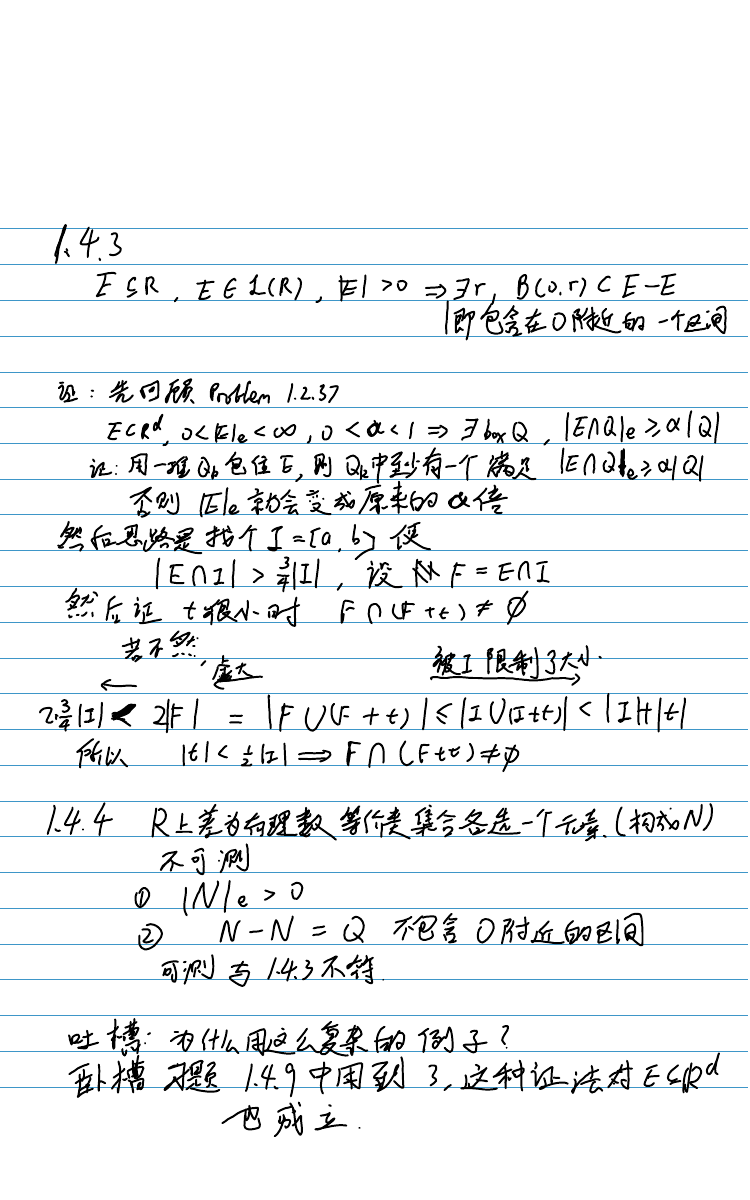 1.4.3
E⊆R, E∈L(R), |E|>0 ⇒ ∃r, B(0,r)⊂E-E
即包含在0附近的一个区间
证: 先回顾 Problem 1.2.37
E⊂R^d, 0<|E|e<∞, 0<α<1 ⇒ ∃ box Q, |E∩Q|e≥α|Q|
证: 用一堆Qk包住E, 则Qk中至少有一个满足 |E∩Q|e≥α|Q|
否则|E|e就会变成原来的α倍
然后思路是找个I=[a,b]使
|E∩I|>3/4|I|, 设 F=E∩I
然后证 t很小时 F∩(F+t)≠∅
若不然, 虚大 被I限制了大小
2·3/4|I|< 2|F| = |F∪(F+t)|≤|I∪(I+t)|<|I|+|t|
所以 |t|<1/2|I| ⇒ F∩(F+t)≠∅
1.4.4 R上差为有理数等价类集合各选一个元素(构成N)
不可测
① |N|e>0
② N-N=Q 不包含0附近的区间
可测与1.4.3不符.
吐槽: 为什么用这么复杂的例子?
卧槽 习题 1.4.9中用到3, 这种证法对E⊆R^d
也成立.